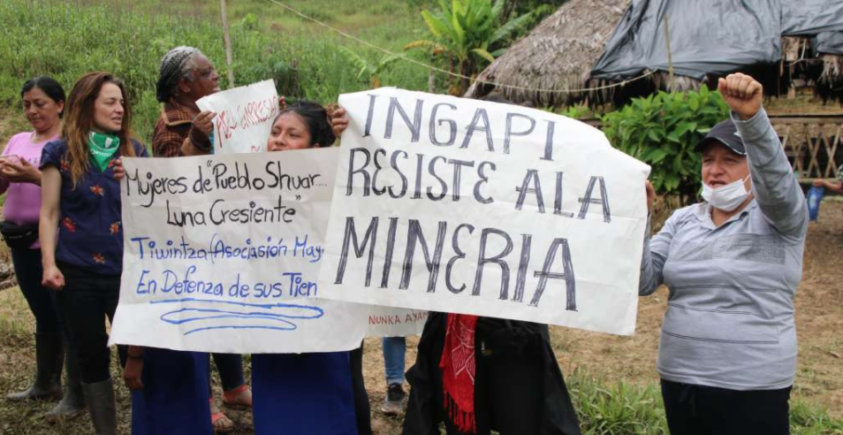 Mujeres de "Pueblo Shuar
Luna Cresiente"
Tiwintza (Asociasión May
En Defenza de sus Tier
INGAPI
RESISTE ALA
MINERIA
NUNKA AYAM